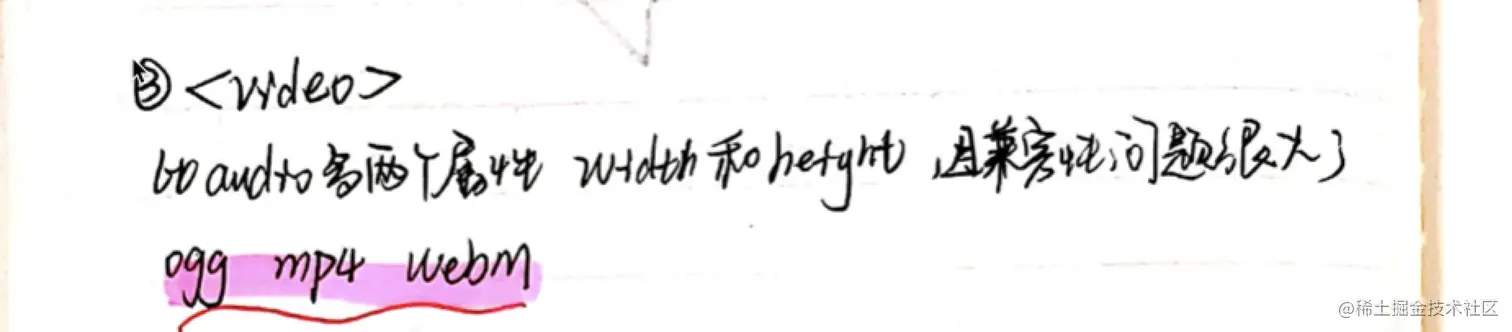 ③ <video>
比audio多两个属性 width和height,且兼容性问题很大了
ogg mp4 webm
@稀土掘金技术社区